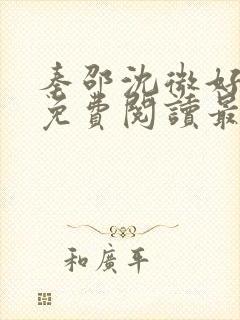 秦邵沈微好
免費閱讀最
和廣平